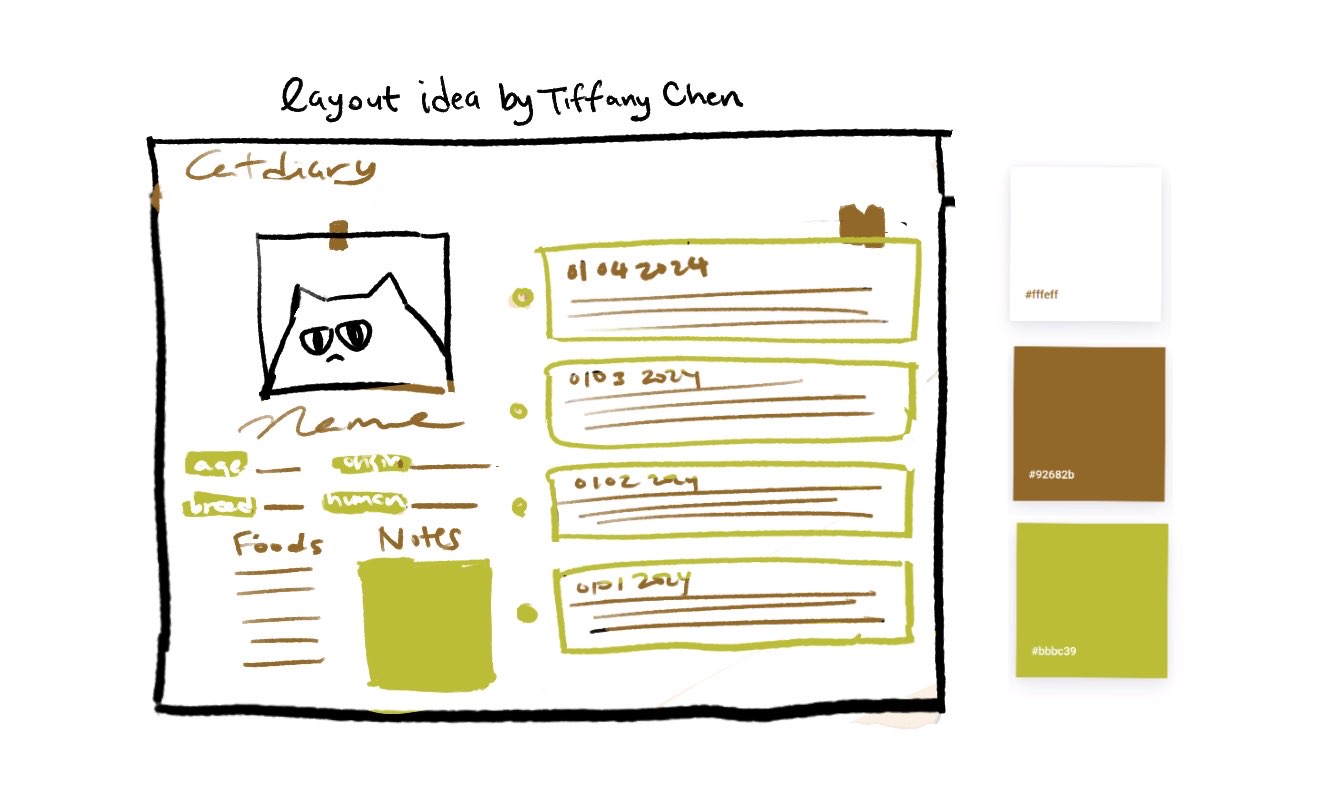 layout idea by Tiffany Chen
Catdiary
Name
age
origin
bread
human
Foods
Notes
01 04 2024
0103 2024
0102 2024
0101 2024
#fffeff
#92682b
#bbbc39